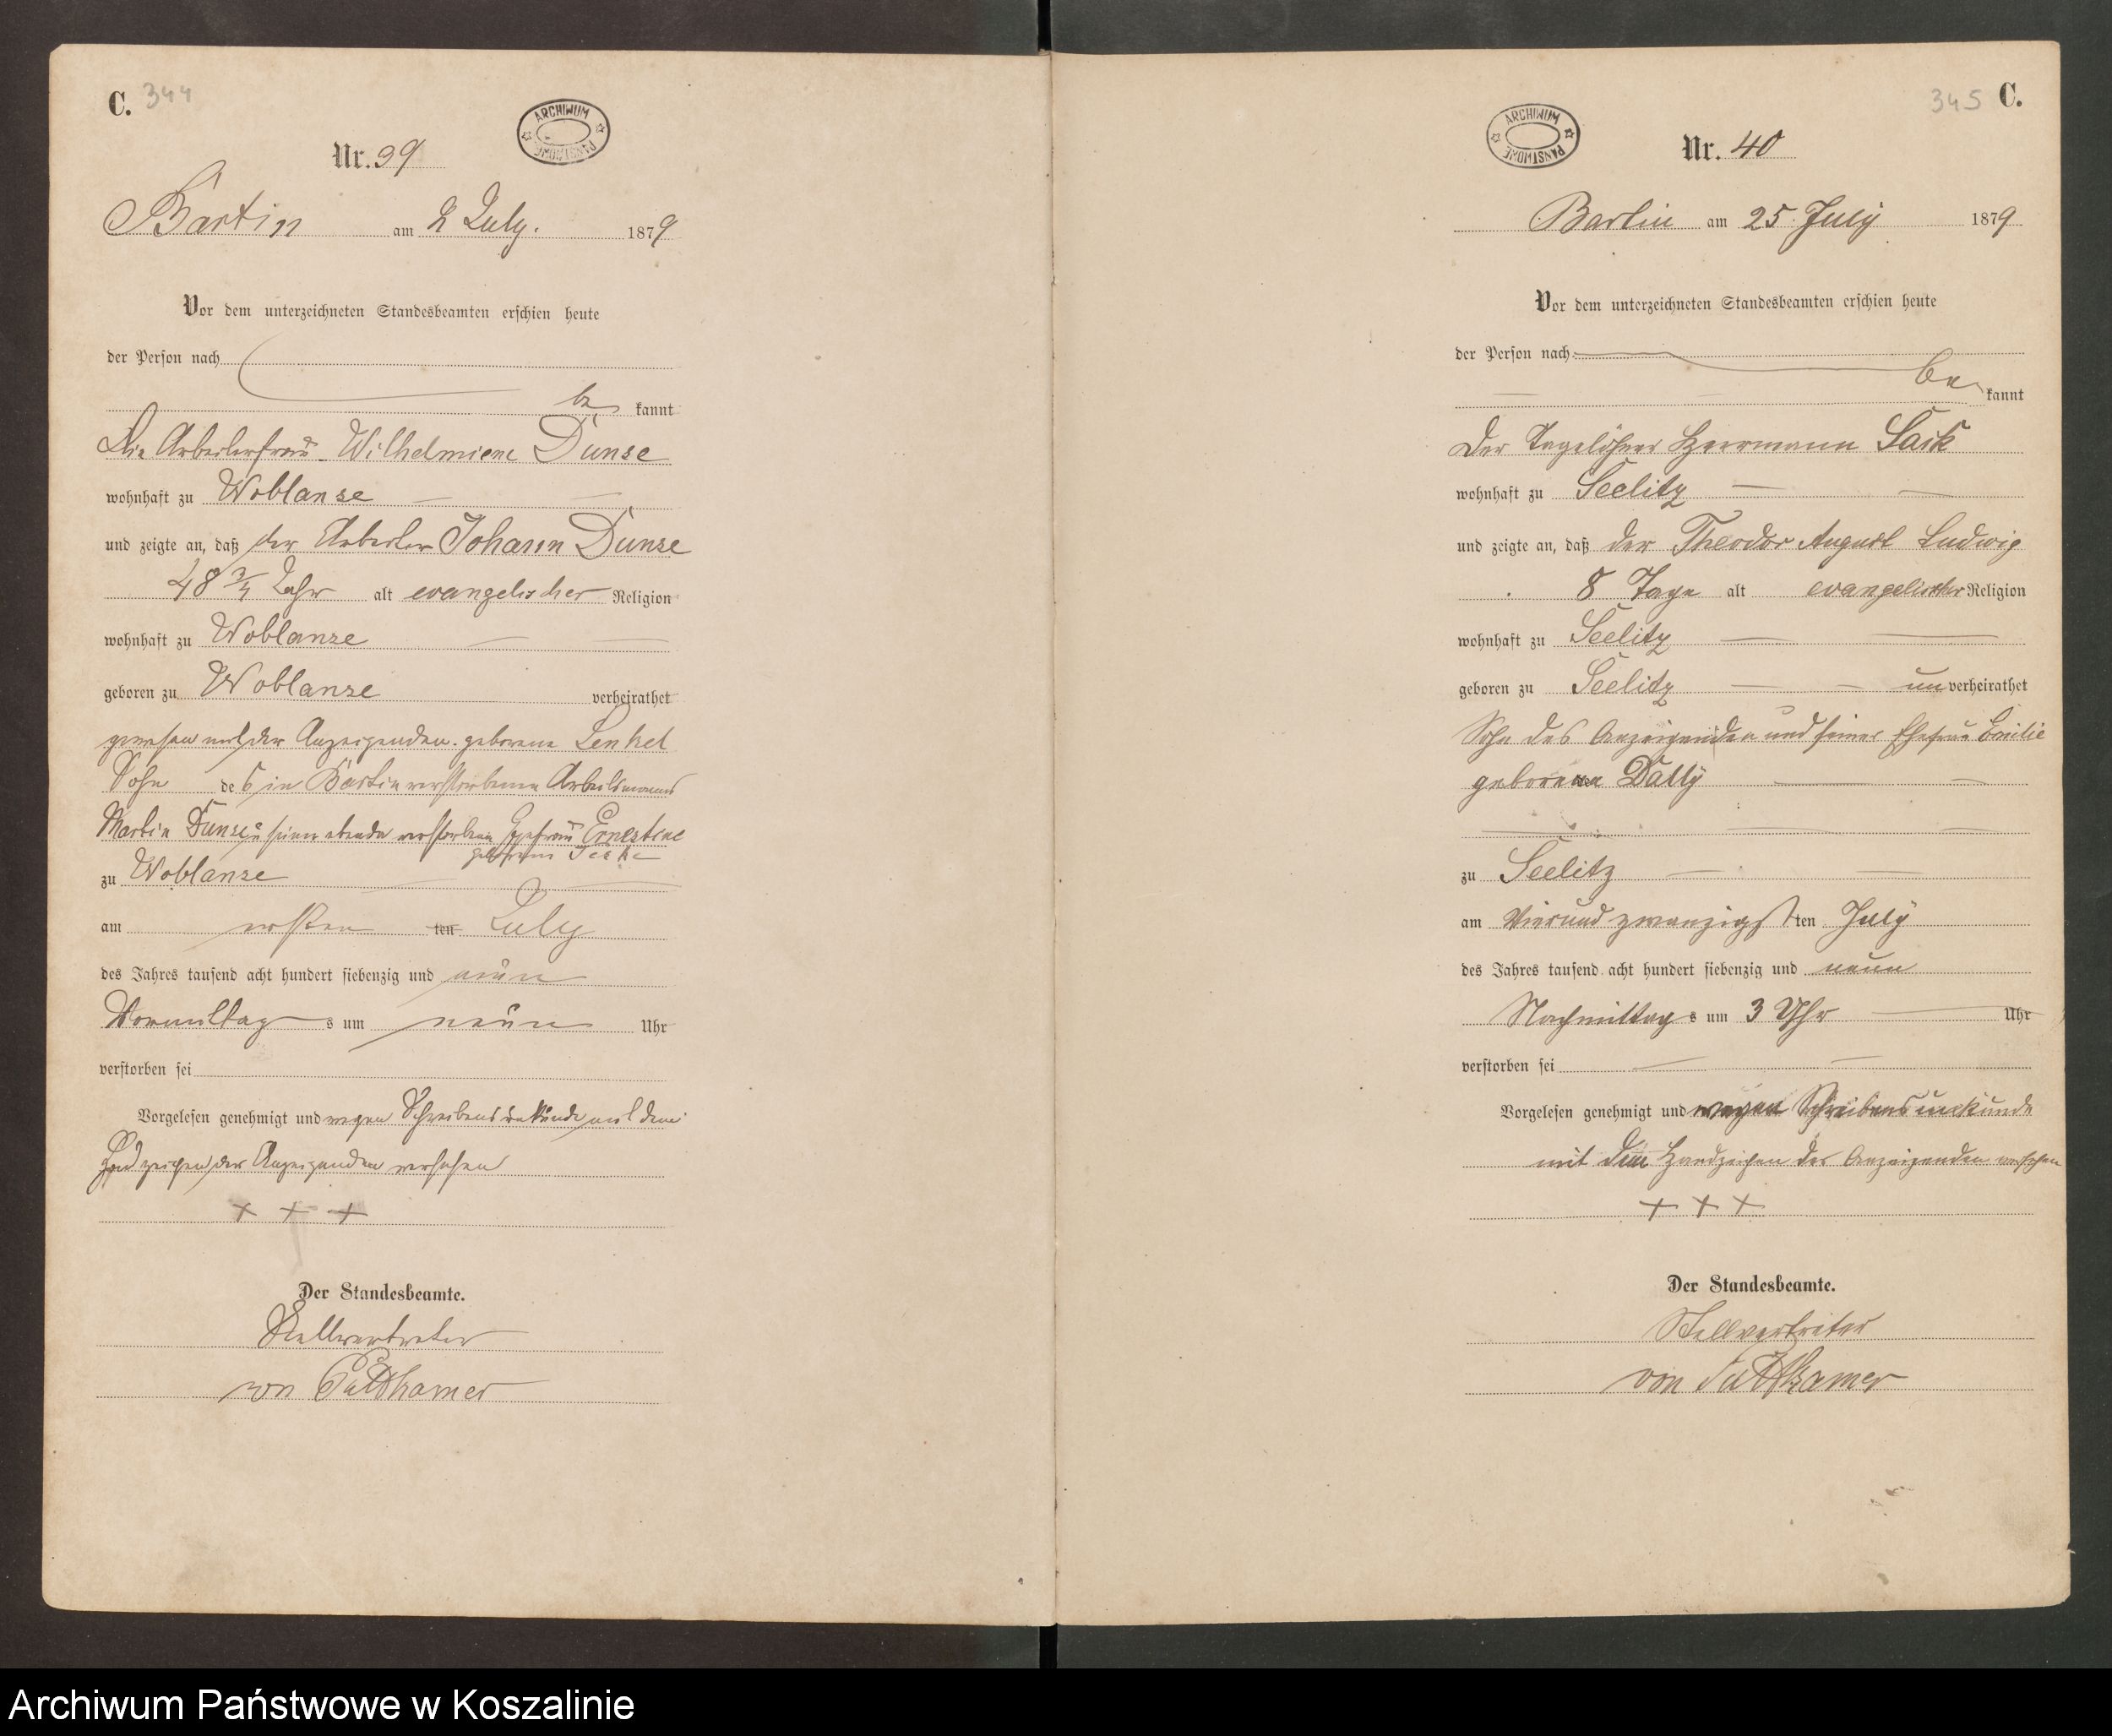 C. 344
ARCHIWUM PAŃSTWOWE
Nr. 39
Bartin am 2 July. 1879
Vor dem unterzeichneten Standesbeamten erschien heute
der Person nach
be kannt
Die Arbeiterfrau Wilhelmiene Dunse
wohnhaft zu Woblanse
und zeigte an, daß der Arbeiter Johann Dunse
48 3/4 Jahr alt evangelischer Religion
wohnhaft zu Woblanse
geboren zu Woblanse verheirathet
gewesen mit der Anzeigenden geborene
Sohn des in Bartin verstorbenen Arbeitsmanns
Martin Dunse u seiner verstorbenen Ehefrau Ernestine
geborene
zu Woblanse
am ersten ten July
des Jahres tausend acht hundert siebenzig und neun
Vormittag s um neun Uhr
verstorben sei
Vorgelesen genehmigt und wegen Schreibensunkunde mit dem
Handzeichen der Anzeigenden versehen
+ + +
Der Standesbeamte.
Stellvertreter
von Puttkamer
345 C.
ARCHIWUM PAŃSTWOWE
Nr. 40
Bartin am 25 July 1879
Vor dem unterzeichneten Standesbeamten erschien heute
der Person nach
be kannt
Der Tagelöhner Herrmann
wohnhaft zu Seelitz
und zeigte an, daß der Theodor August Ludwig
8 Tage alt evangelischer Religion
wohnhaft zu Seelitz
geboren zu Seelitz un verheirathet
Sohn des Anzeigenden und seiner Ehefrau Emilie
geborenen Dally
zu Seelitz
am Vierundzwanzigst ten July
des Jahres tausend acht hundert siebenzig und neun
Nachmittag s um 3 Uhr Uhr
verstorben sei
Vorgelesen genehmigt und wegen Schreibensunkunde
mit dem Handzeichen des Anzeigenden versehen
+ + +
Der Standesbeamte.
Stellvertreter
von Puttkamer
Archiwum Państwowe w Koszalinie